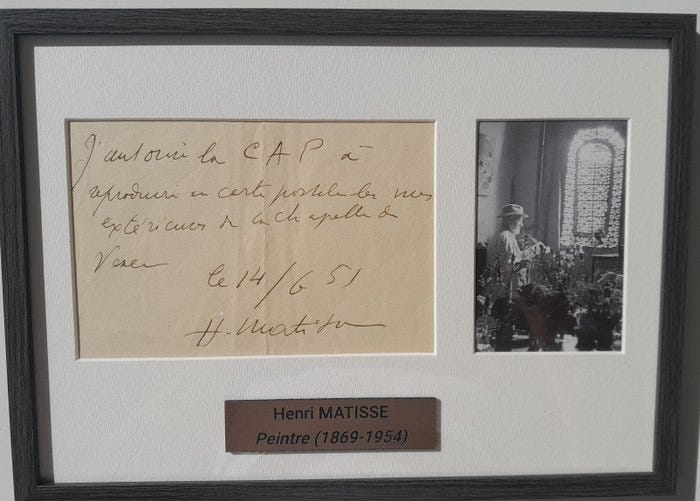 J'autorise la CAP à
reproduire en carte postale les vues
extérieures de la chapelle de
Vence
le 14/6 51
H. Matisse
Henri MATISSE
Peintre (1869-1954)